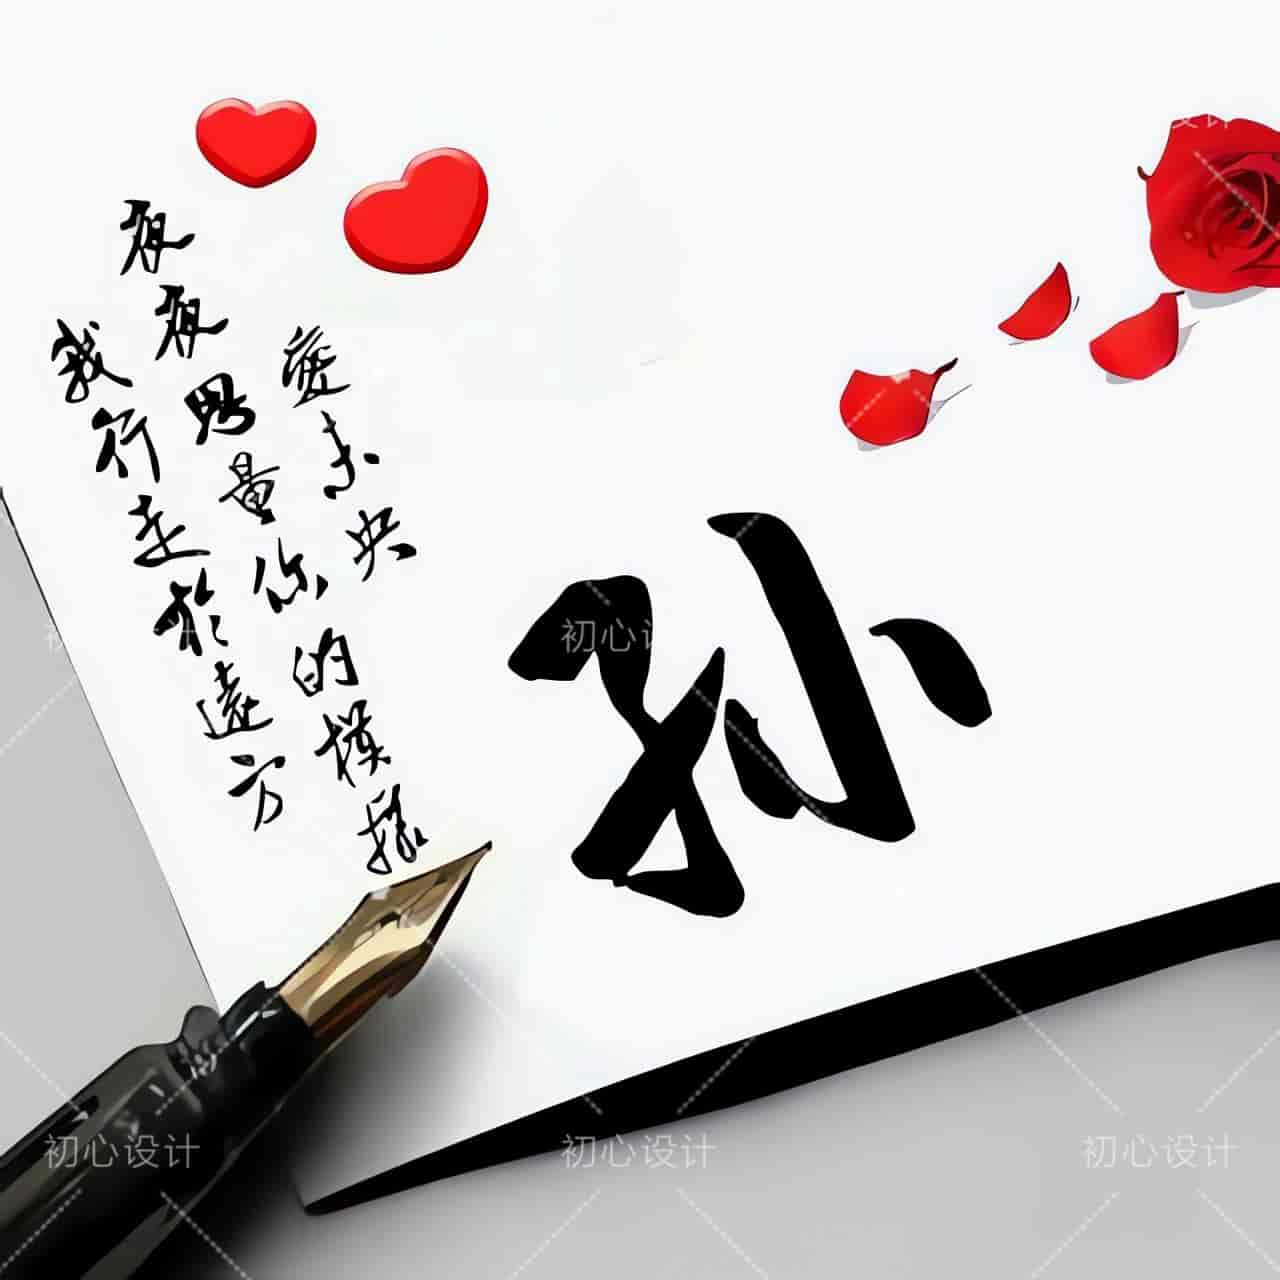 愛未央
夜夜思量你的模樣
我行走於遠方
孙
初心设计
初心设计
初心设计
初心设计